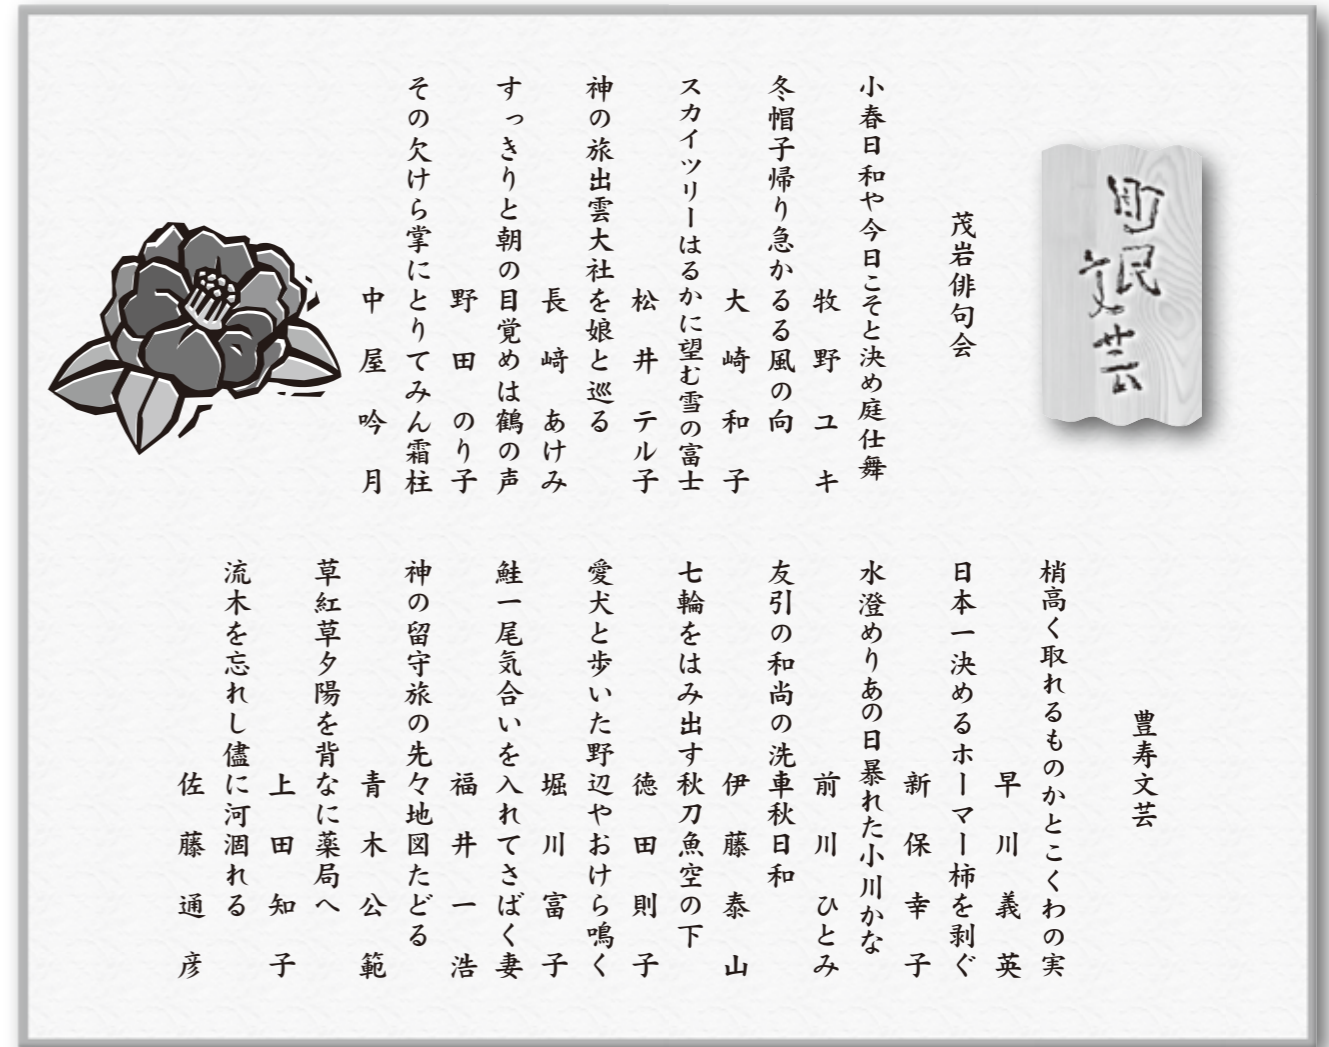 町民文芸
茂岩俳句会
小春日和や今日こそと決め庭仕舞
牧野ユキ
冬帽子帰り急かるる風の向
大崎和子
スカイツリーはるかに望む雪の富士
松井テル子
神の旅出雲大社を娘と巡る
長﨑あけみ
すっきりと朝の目覚めは鶴の声
野田のり子
その欠けら掌にとりてみん霜柱
中屋吟月
豊寿文芸
梢高く取れるものかとこくわの実
早川義英
日本一決めるホーマー柿を剥ぐ
新保幸子
水澄めりあの日暴れた小川かな
前川ひとみ
友引の和尚の洗車秋日和
伊藤泰山
七輪をはみ出す秋刀魚空の下
徳田則子
愛犬と歩いた野辺やおけら鳴く
堀川富子
鮭一尾気合いを入れてさばく妻
福井一浩
神の留守旅の先々地図たどる
青木公範
草紅草夕陽を背なに薬局へ
上田知子
流木を忘れし儘に河涸れる
佐藤通彦